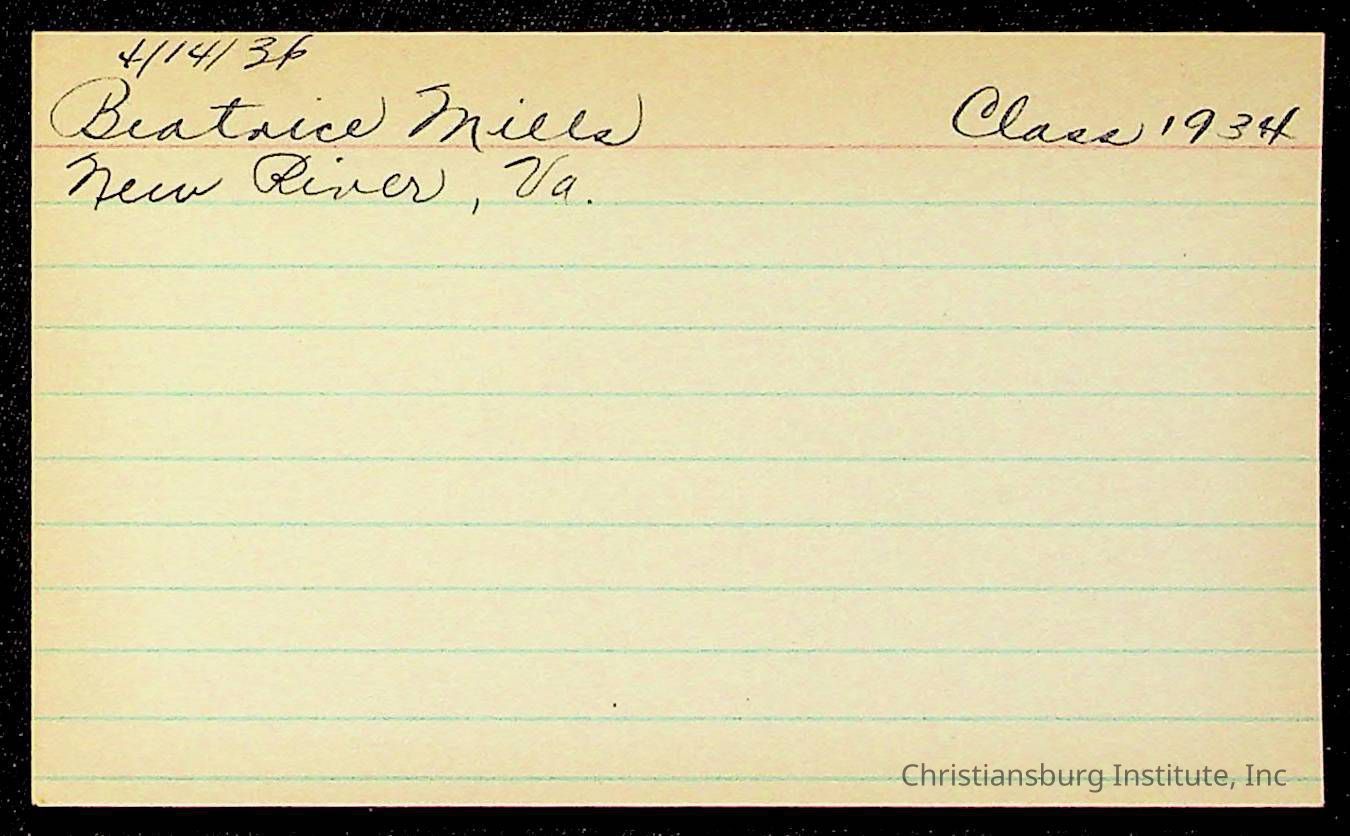 4/14/36
Beatrice Mills Class 1934
New River, Va.
Christiansburg Institute, Inc